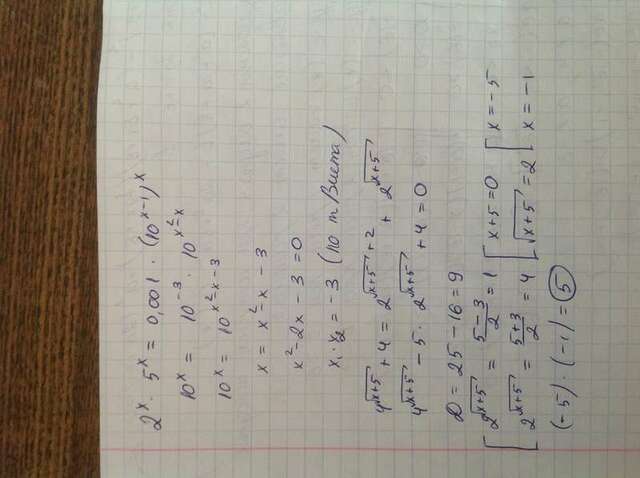 2^x · 5^x = 0,001 · (10^{x-1})^x
10^x = 10^{-3} · 10^{x^2-x}
10^x = 10^{x^2-x-3}
x = x^2 - x - 3
x^2 - 2x - 3 = 0
x_1 · x_2 = -3 (по т Виета)
4^{√(x+5)} + 4 = 2^{√(x+5)+2} + 2^{√(x+5)}
4^{√(x+5)} - 5 · 2^{√(x+5)} + 4 = 0
D = 25 - 16 = 9
[ 2^{√(x+5)} = (5-3)/2 = 1 [ x+5 = 0 [ x = -5
[ 2^{√(x+5)} = (5+3)/2 = 4 [ √(x+5) = 2 [ x = -1
(-5) · (-1) = 5